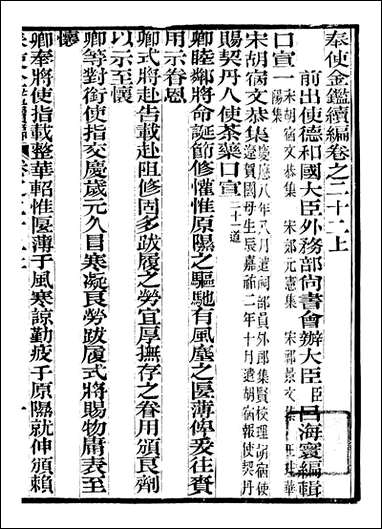 奉使金鑑續編卷之二十二上
前出使德和國大臣外務部尚書會辦大臣臣呂海寰編輯
口宣一 宋胡宿文恭集 宋鄭元憲集 宋祁景文集
陽集
宋胡宿文恭集
賜契丹人使茶藥口宣 二十一道
卿睦鄰將命誕節修懽惟原隰之驅馳有風塵之匽薄俾爰往賚
用示眷恩
卿式將赴告載赴阻修固多跋履之勞宜厚撫存之眷用頒艮劑
以示至懷
卿等對銜使指交慶歲元久冒寒凝艮勞跋履式將賜物庸表至
懷
卿奉將使指載整華軺惟匽薄于風寒諒勤疲于原隰就伸頒賴